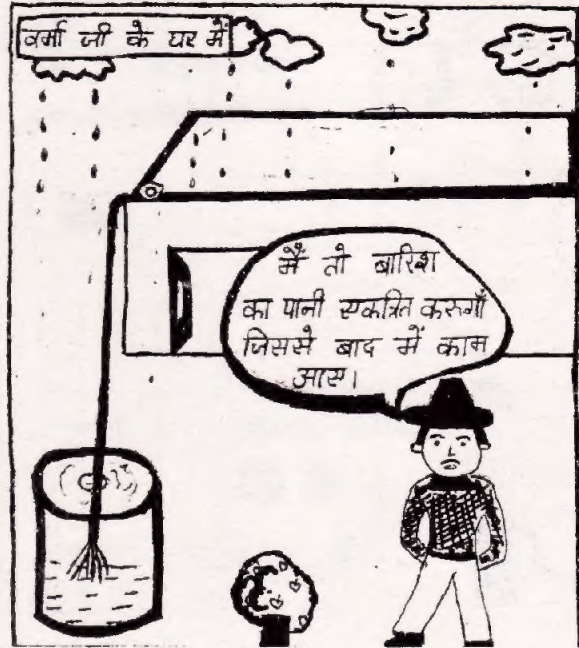 वर्मा जी के घर में
मैं तो बारिश
का पानी एकत्रित करुगाँ
जिससे बाद में काम
आए।